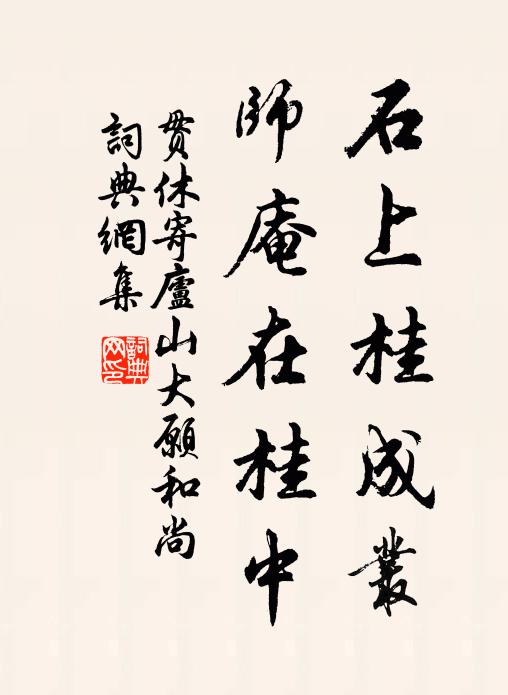 石上桂成叢
師庵在桂中
貫休寄廬山大願和尚
詞典網集
詞典
网印